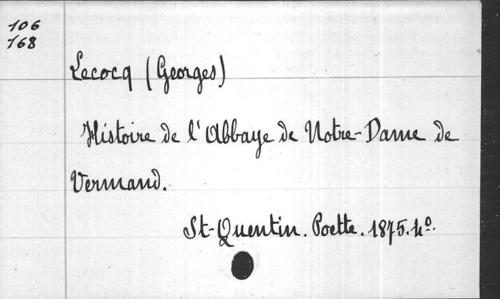 106
768
Lecocq (Georges)
Histoire de l'Abbaye de Notre-Dame de
Vermand.
St-Quentin. Poette. 1875. 4º.